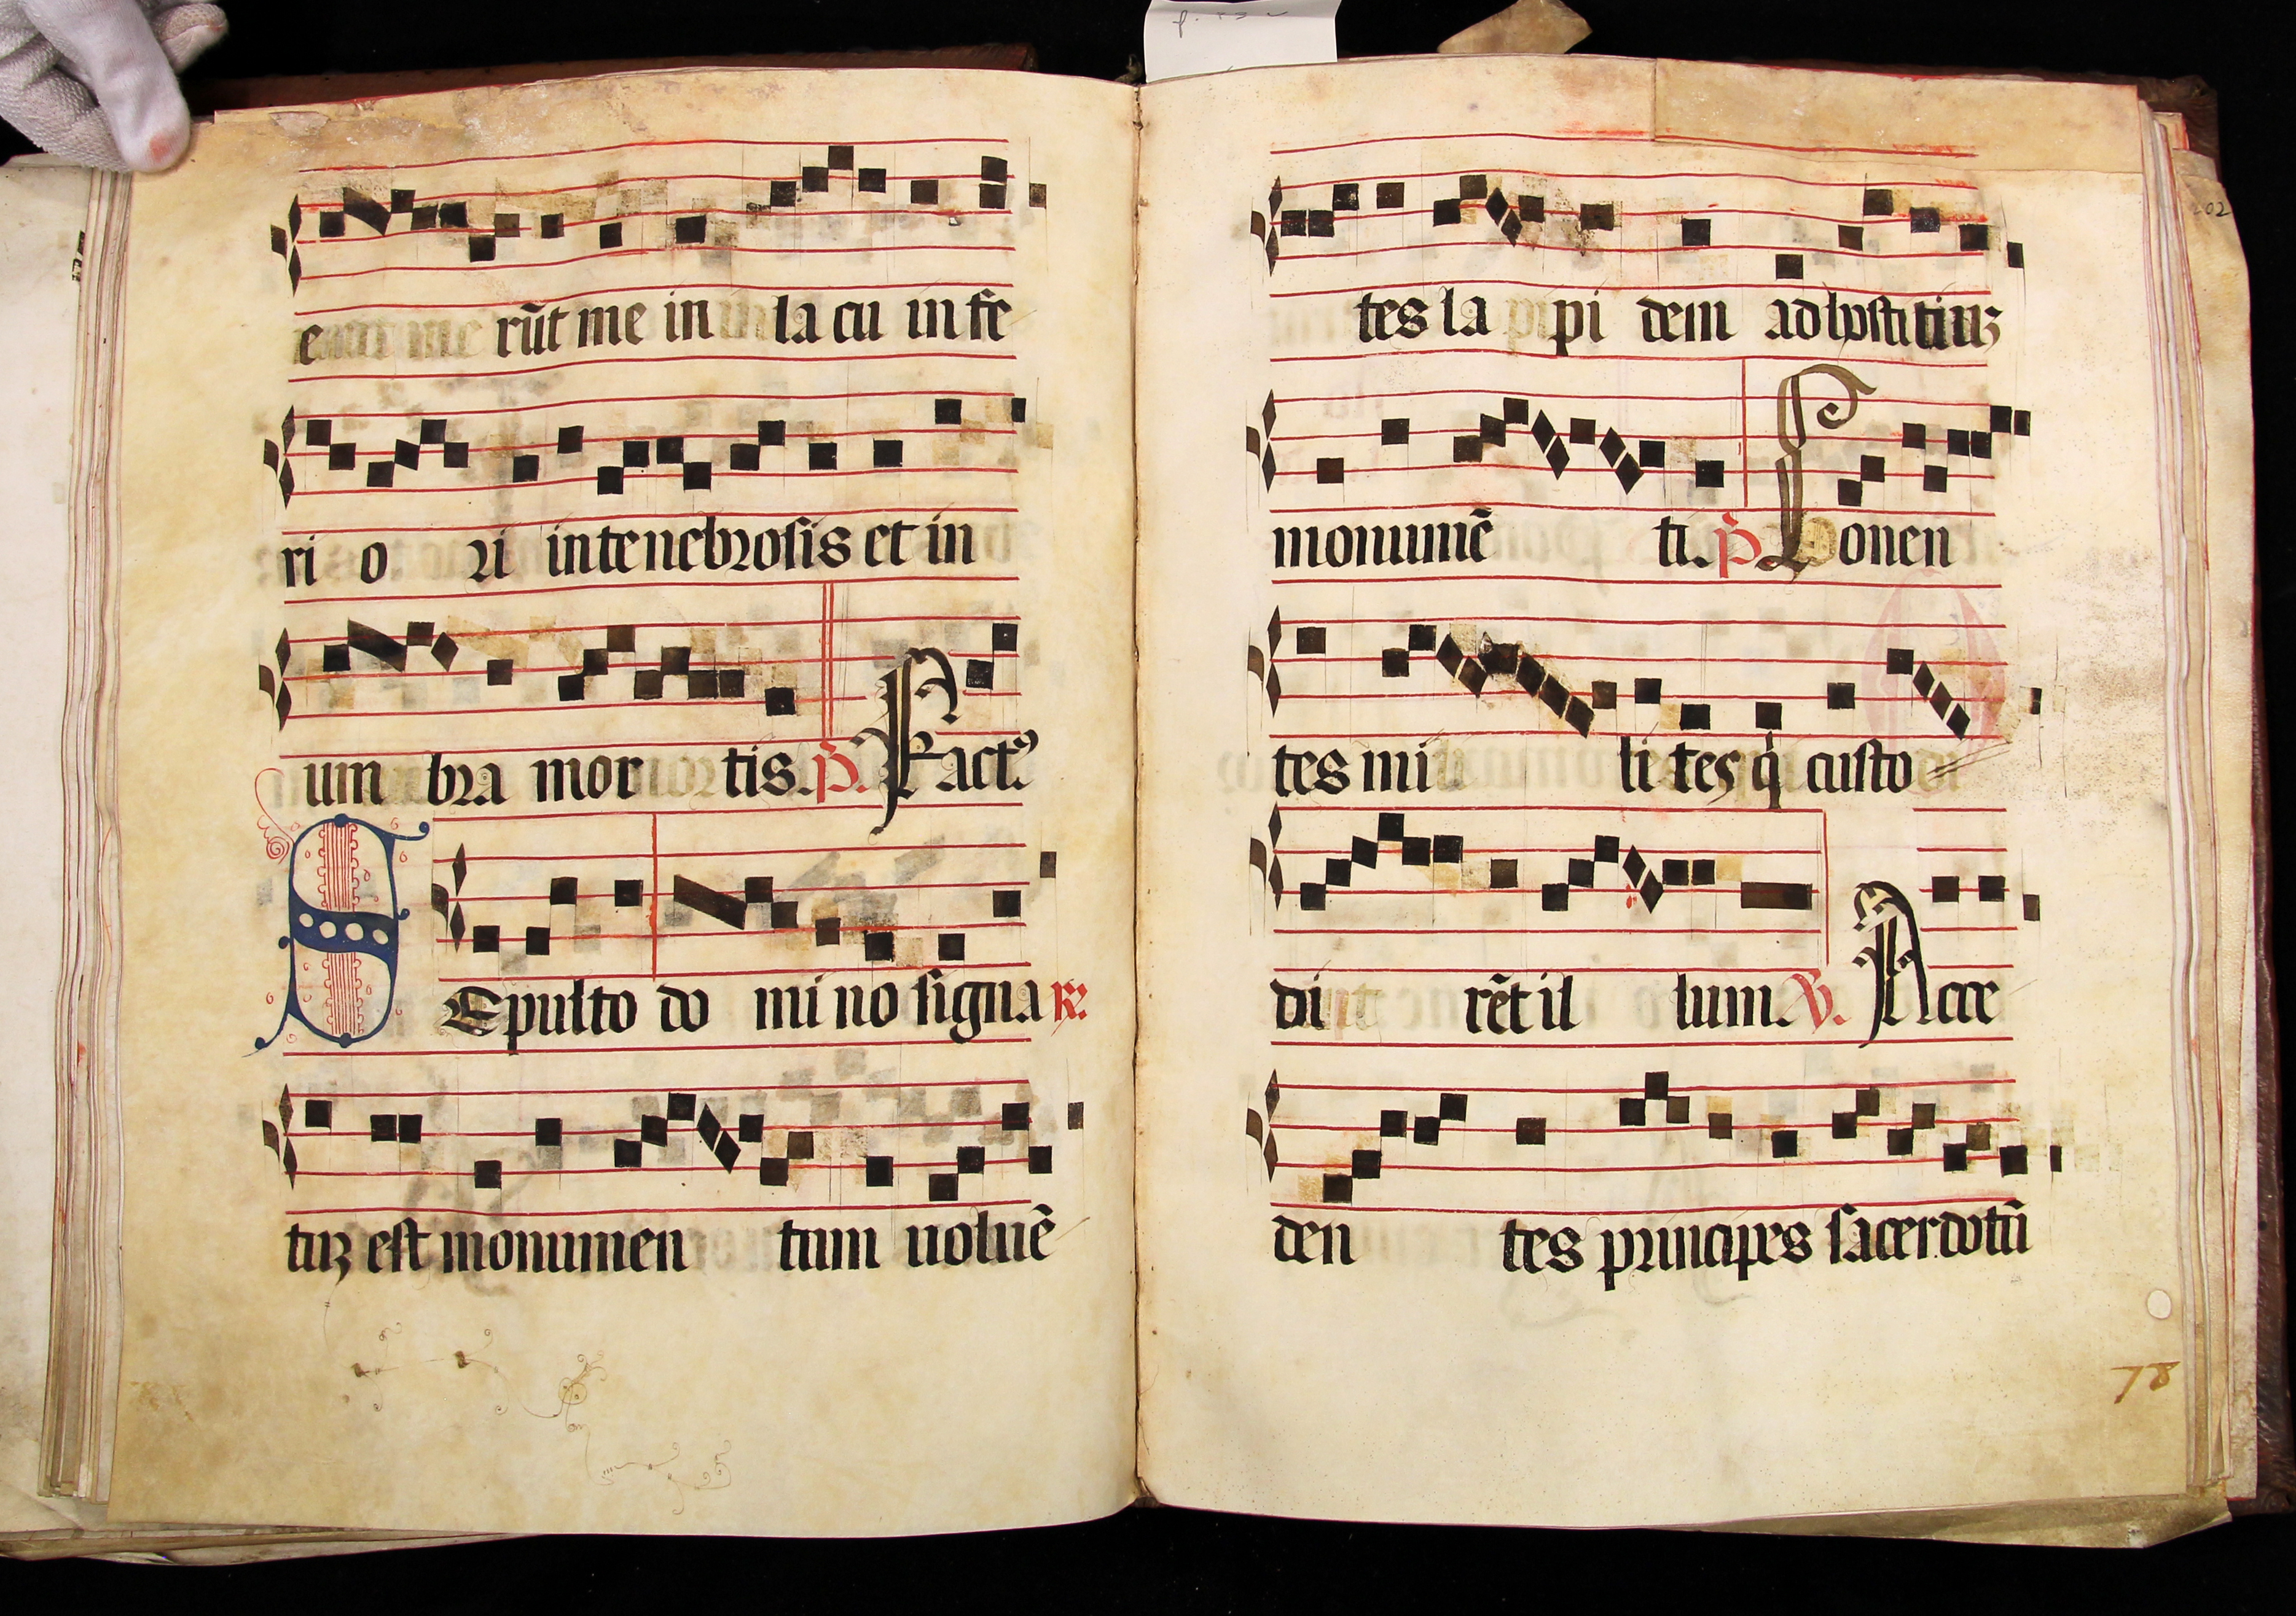 e rũt me in la cu in fe
ri o ri in tenebrosis et in
um bra mor tis. p̃. Fact⁹
SEpulto do mi no signa ꝶ.
tuꝫ est monumen tum uoluẽ
tes la pi dem ad hostituꝫ
monumẽ ti. p̃ Ponen
tes mi li tes q̇ custo
di rẽt il lum. ꝟ. Acce
den tes principes sacerdotũ
78